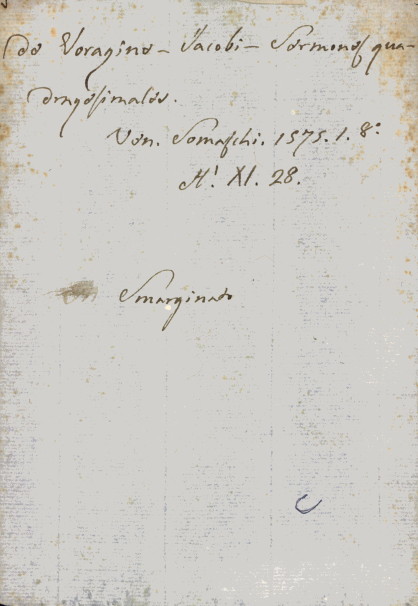 de Voragine - Jacobi - Sermones qua-
dragesimales.
Ven. Somaschi. 1575. 1. 8°
XI. 28.
Smarginato